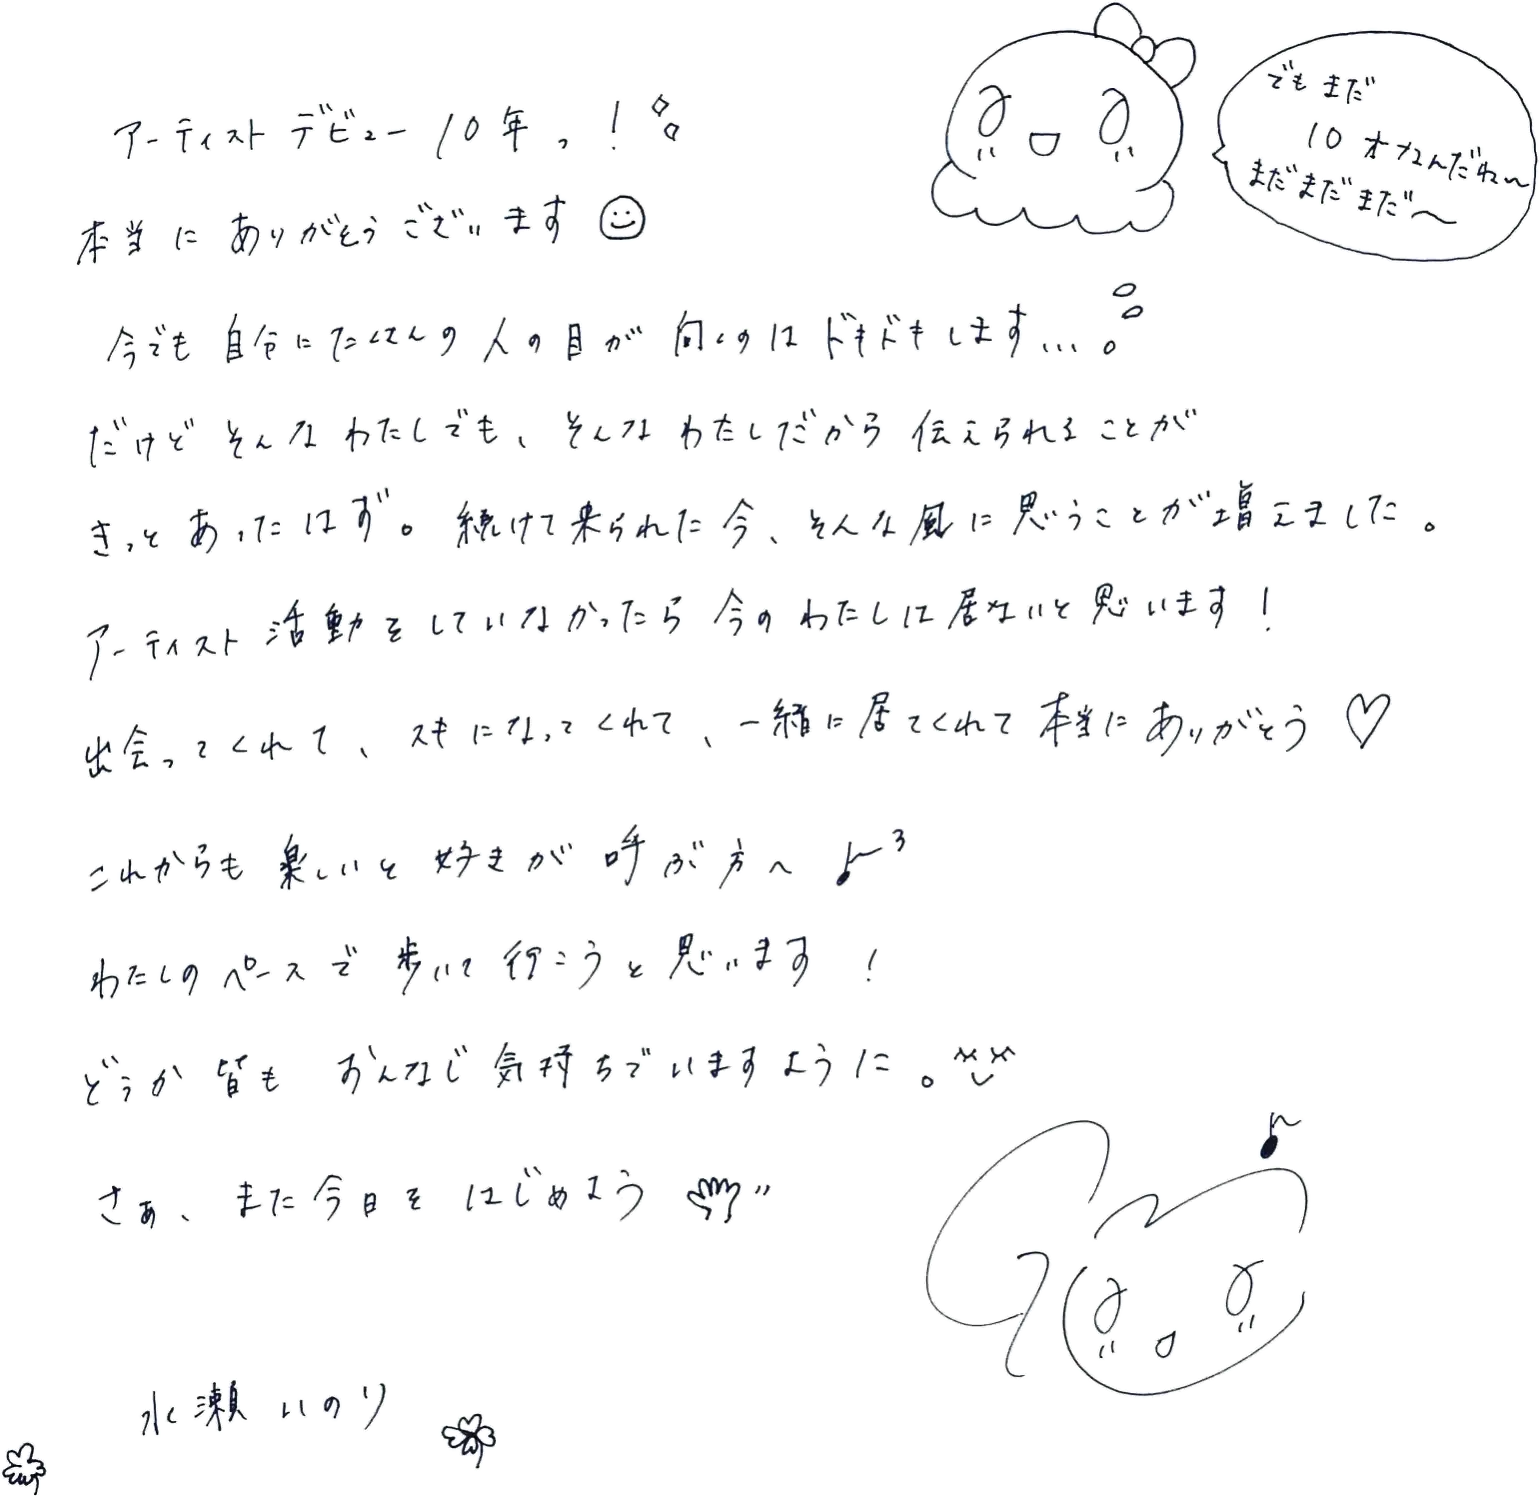 アーティストデビュー10年っ!
でもまだ
10才なんだね〜
まだまだまだ〜
本当にありがとうございます
今でも自分にたくさんの人の目が向くのはドキドキします...
だけどそんなわたしでも、そんなわたしだから伝えられることが
きっとあったはず。続けて来られた今、そんな風に思うことが増えました。
アーティスト活動をしていなかったら今のわたしは居ないと思います!
出会ってくれて、スキになってくれて、一緒に居てくれて本当にありがとう♡
これからも楽しいと好きが呼ぶ方へ♪
わたしのペースで歩いて行こうと思います!
どうか皆もおんなじ気持ちでいますように。
さぁ、また今日をはじめよう
水瀬いのり